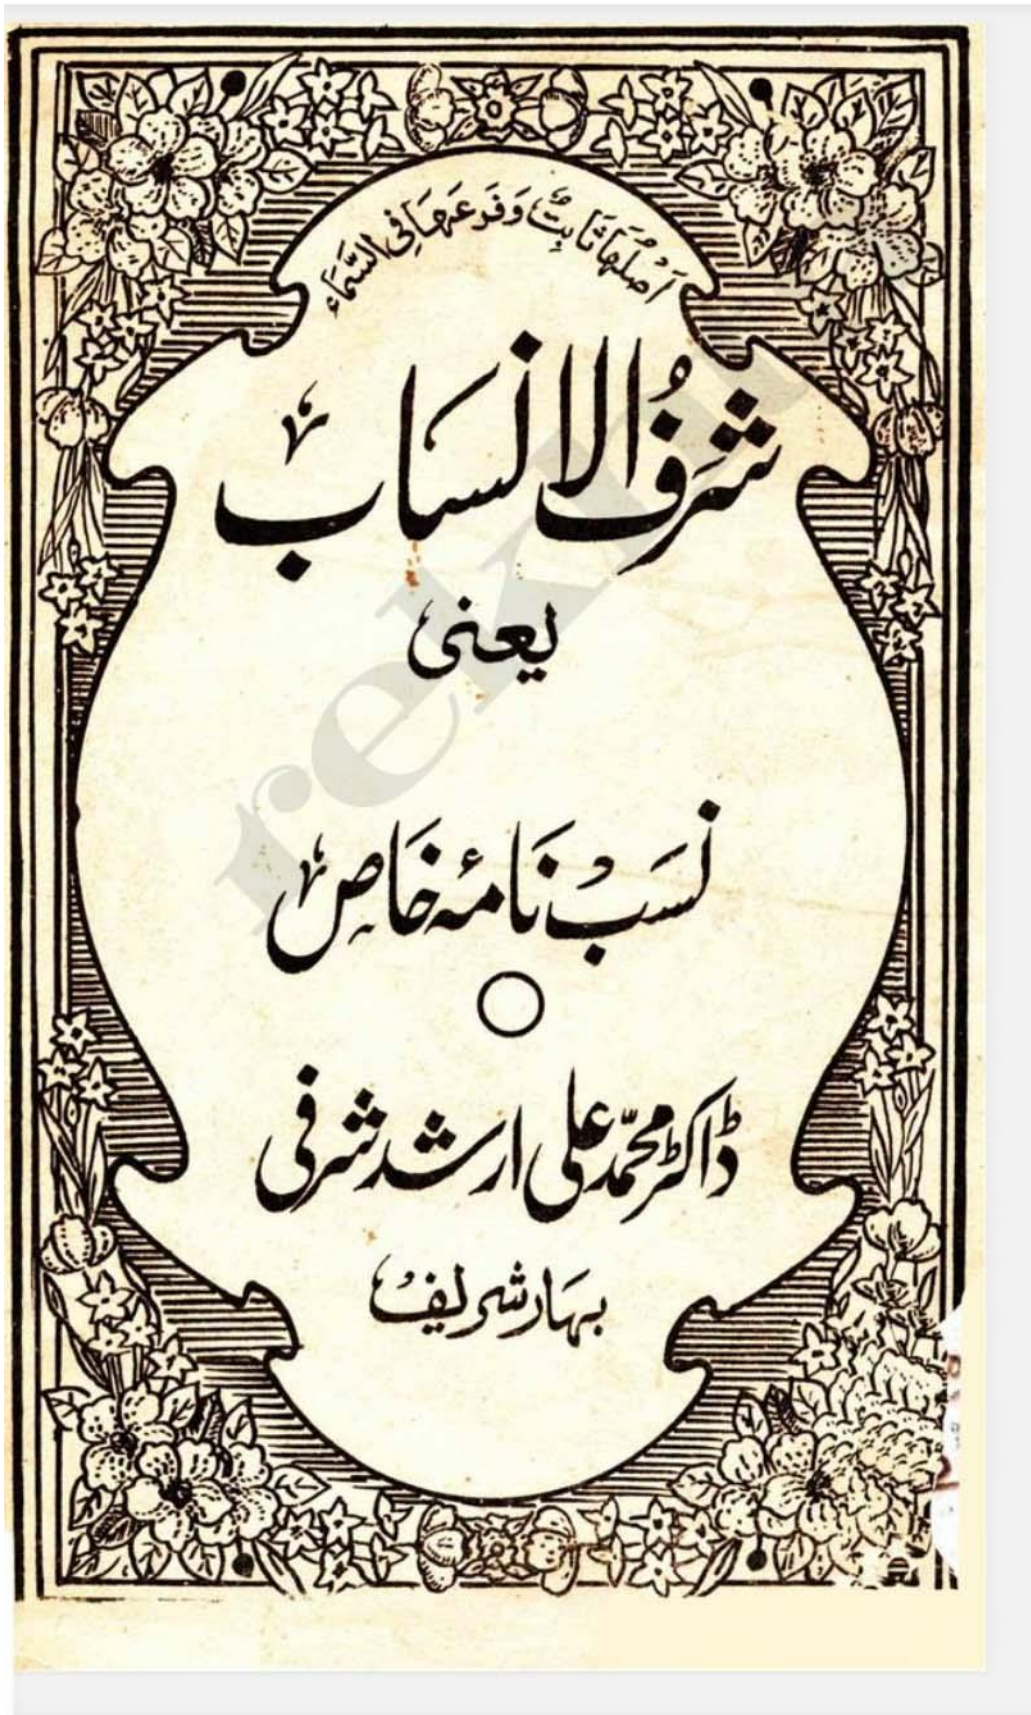 اَصْلُهَا ثَابِتٌ وَفَرْعُهَا فِى السَّمَاء
شَرَفُ الانساب
یعنی
نسَب نَامۂ خَاص
ڈاکٹر محمّد علی ارشد شرفی
بہار شریف
rekh